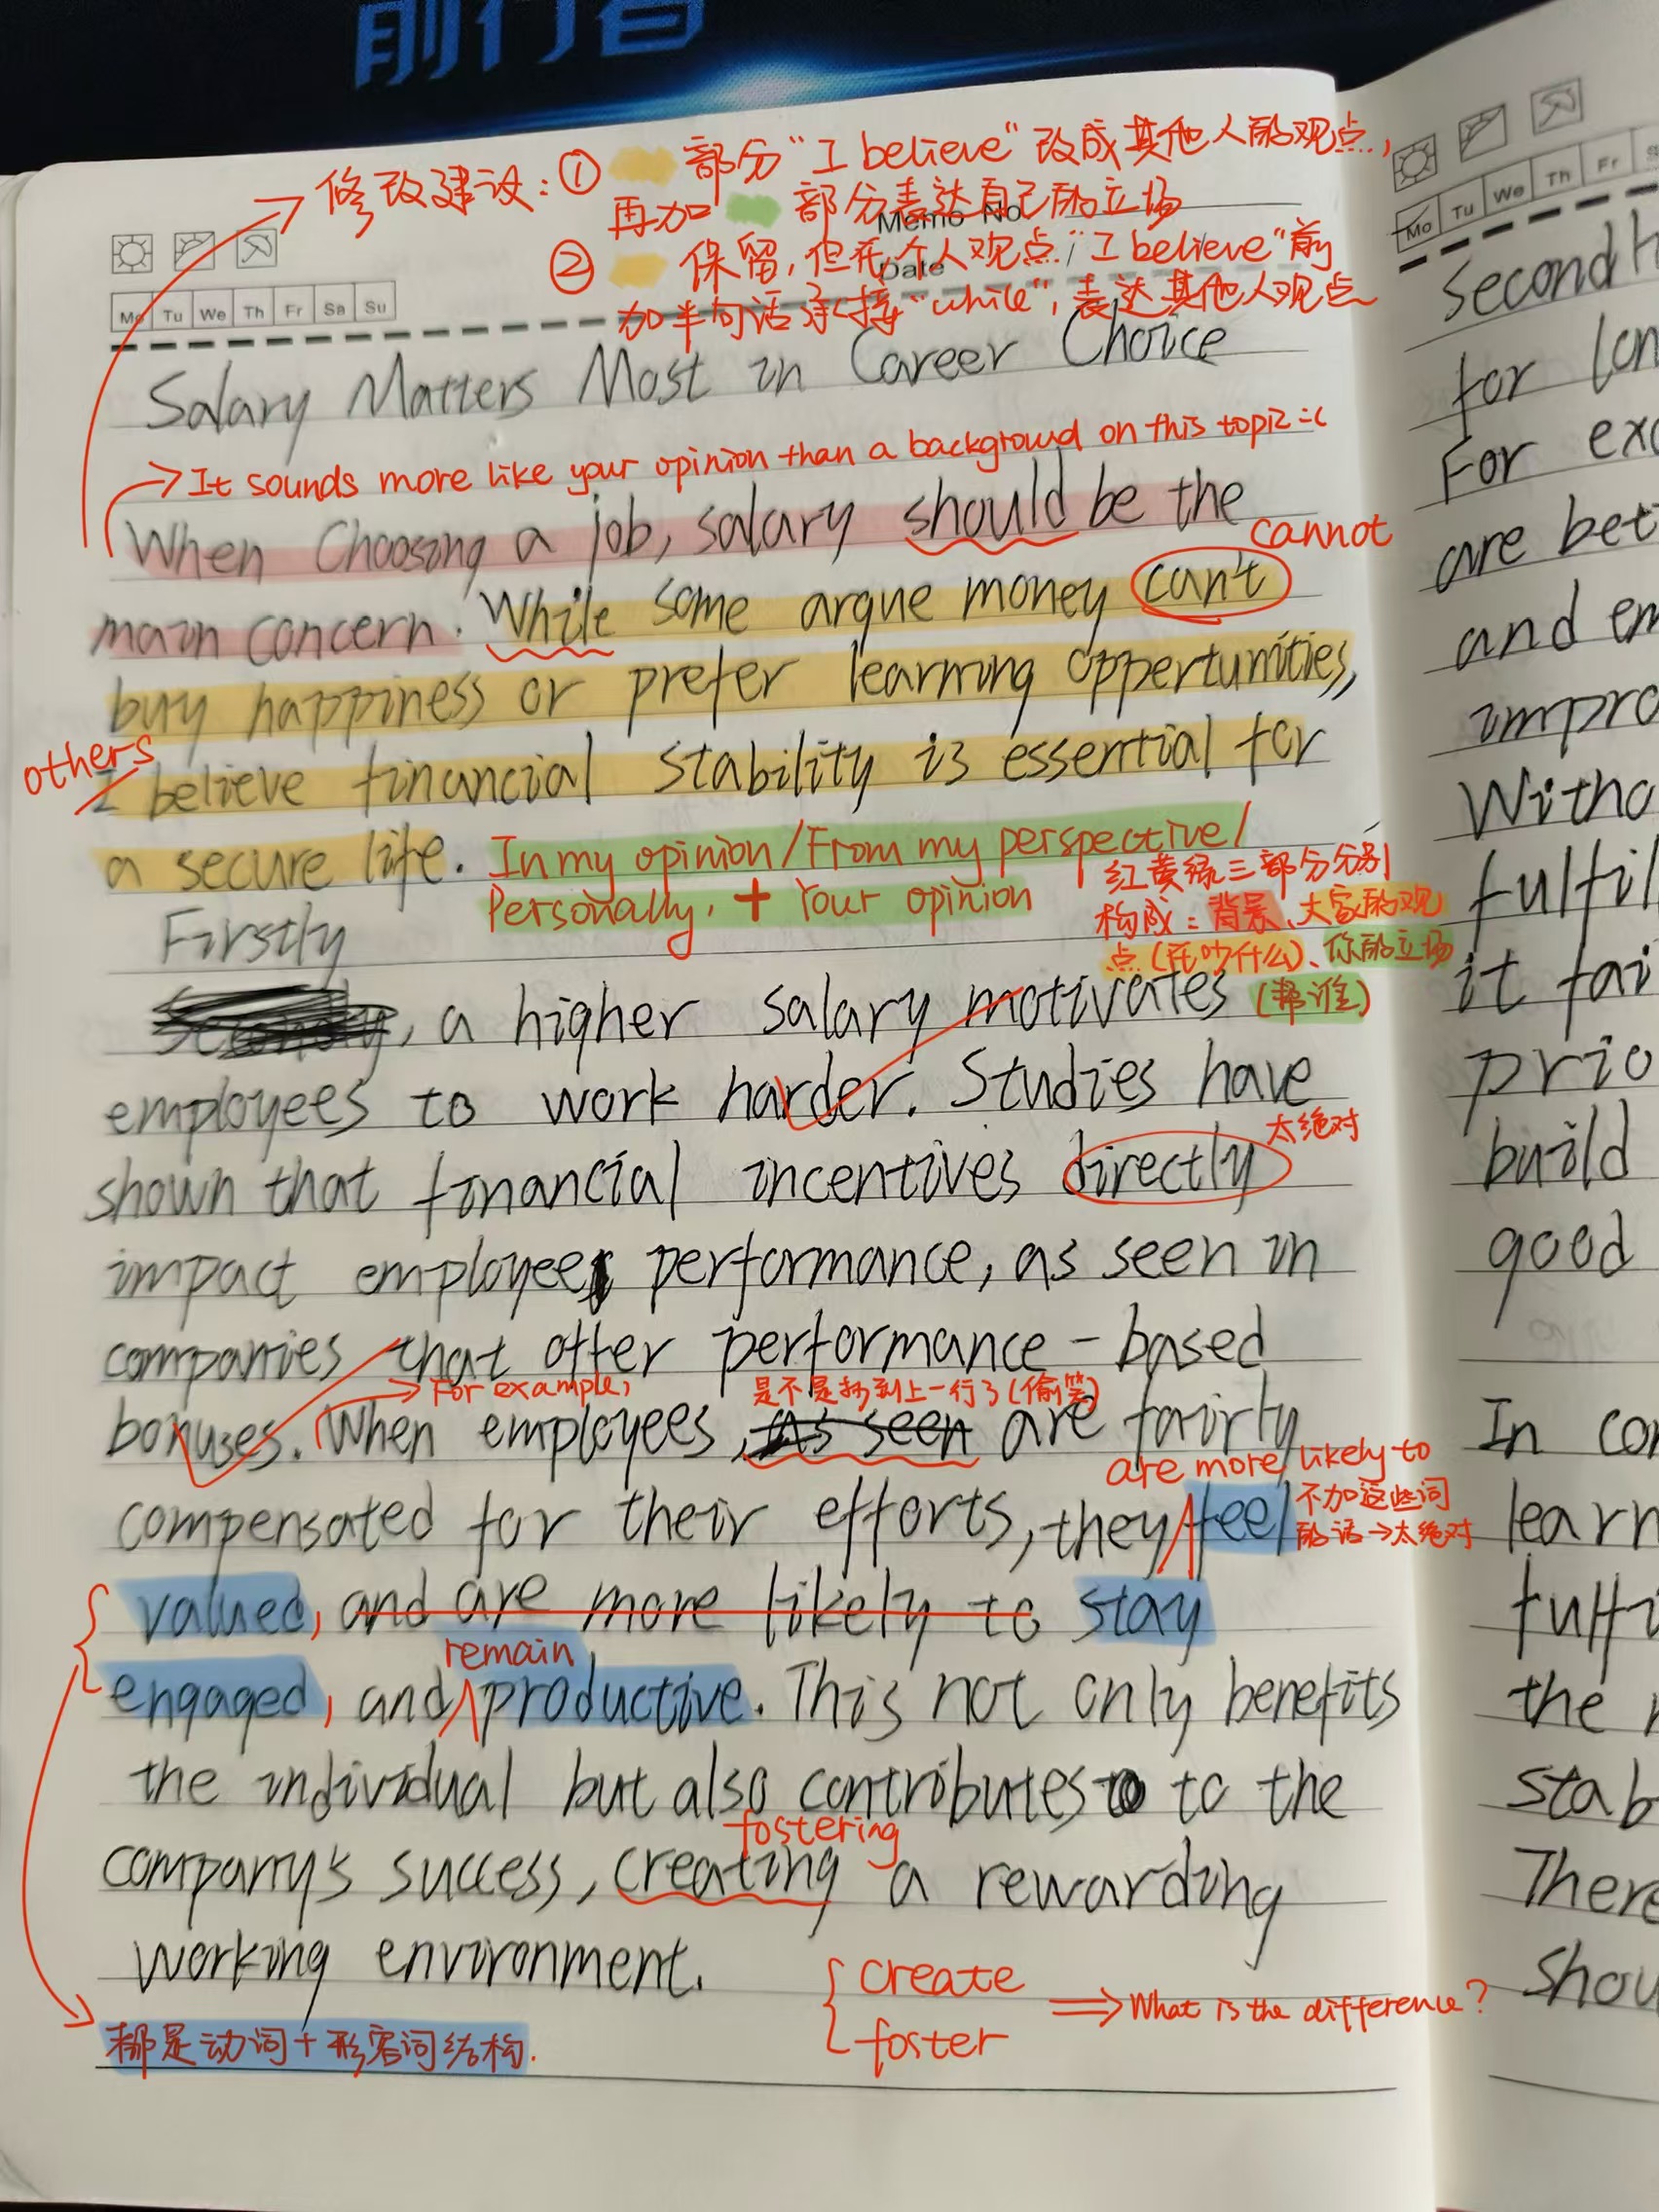 前行者
修改建议：① 部分“I believe”改成其他人的观点，
再加 部分表达自己的立场
Memo No
② 保留，但在个人观点“I believe”前
Date
加半句话承接“while”，表达其他人观点
Mo Tu We Th Fr Sa Su
Salary Matters Most in Career Choice
→ It sounds more like your opinion than a background on this topic :(
When Choosing a job, salary should be the
cannot
main concern. While some argue money can't
buy happiness or prefer learning oppertunities,
others
I believe financial stability is essential for
a secure life. In my opinion/From my perspective/
Personally, + Your opinion
红黄绿三部分分别
构成：背景、大家的观
点（在吵什么）、你的立场
（帮谁）
Firstly
, a higher salary motivates
employees to work harder. Studies have
太绝对
shown that financial incentives directly
impact employee performance, as seen in
companies that offer performance-based
→ For example, 是不是抄到上一行了（偷笑）
bonuses. When employees, as seen are fairly
are more likely to
compensated for their efforts, they feel
不加这些词
的话→太绝对
valued, and are more likely to stay
remain
engaged, and productive. This not only benefits
the individual but also contributes to the
fostering
company's success, creating a rewarding
working environment.
create
foster
⇒ What is the difference?
都是动词+形容词结构.
Mo Tu We Th Fr
Second
for
For
are
and
good
In
learn
the